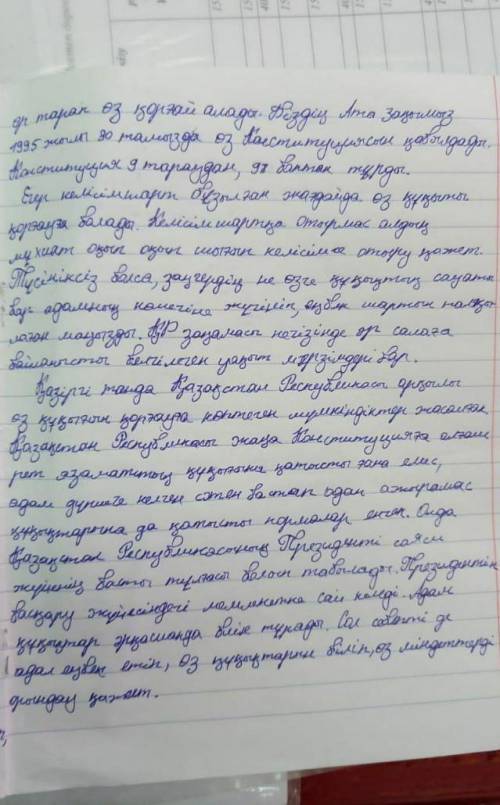 әр тарап өз қорғай алады. Біздің Ата заңымыз
1995 жылы 30 тамызда өз Конституциясын қабылдады.
Конституция 9 тараудан, 98 баптан тұрды.
Егер келісімшарт бұзылған жағдайда өз құқығын
қорғауға болады. Келісімшартқа отырмас алдын
мұқият оқып шығып келісімге отыру қажет.
Түсініксіз болса, заңгердің не өзге құқықтық сауаты
бар адамның көмегіне жүгініп, еңбек шартын талқы
лаған маңызды. ҚР заңнамасы негізінде әр салаға
байланысты белгіленген уақыт мерзімдері бар.
Қазіргі таңда Қазақстан Республикасы арқылы
өз құқығын қорғауға көптеген мүмкіндіктер жасалған.
Қазақстан Республикасы жаңа Конституцияға алғаш
рет азаматтың құқығына қатысты ғана емес,
адам дүниеге келген сәттен бастап одан ажырамас
құқықтарына да қатысты нормалар енген. Онда
Қазақстан Республикасының Президенті саяси
жүйенің басты тұлғасы болып табылады. Президенттік
басқару жүйесіндегі мемлекетке сай келеді. Адам
құқықтар әрқашанда биік тұрады. Сол себепті де
адал еңбек етіп, өз құқықтарын біліп, өз міндеттерді
орындау қажет.